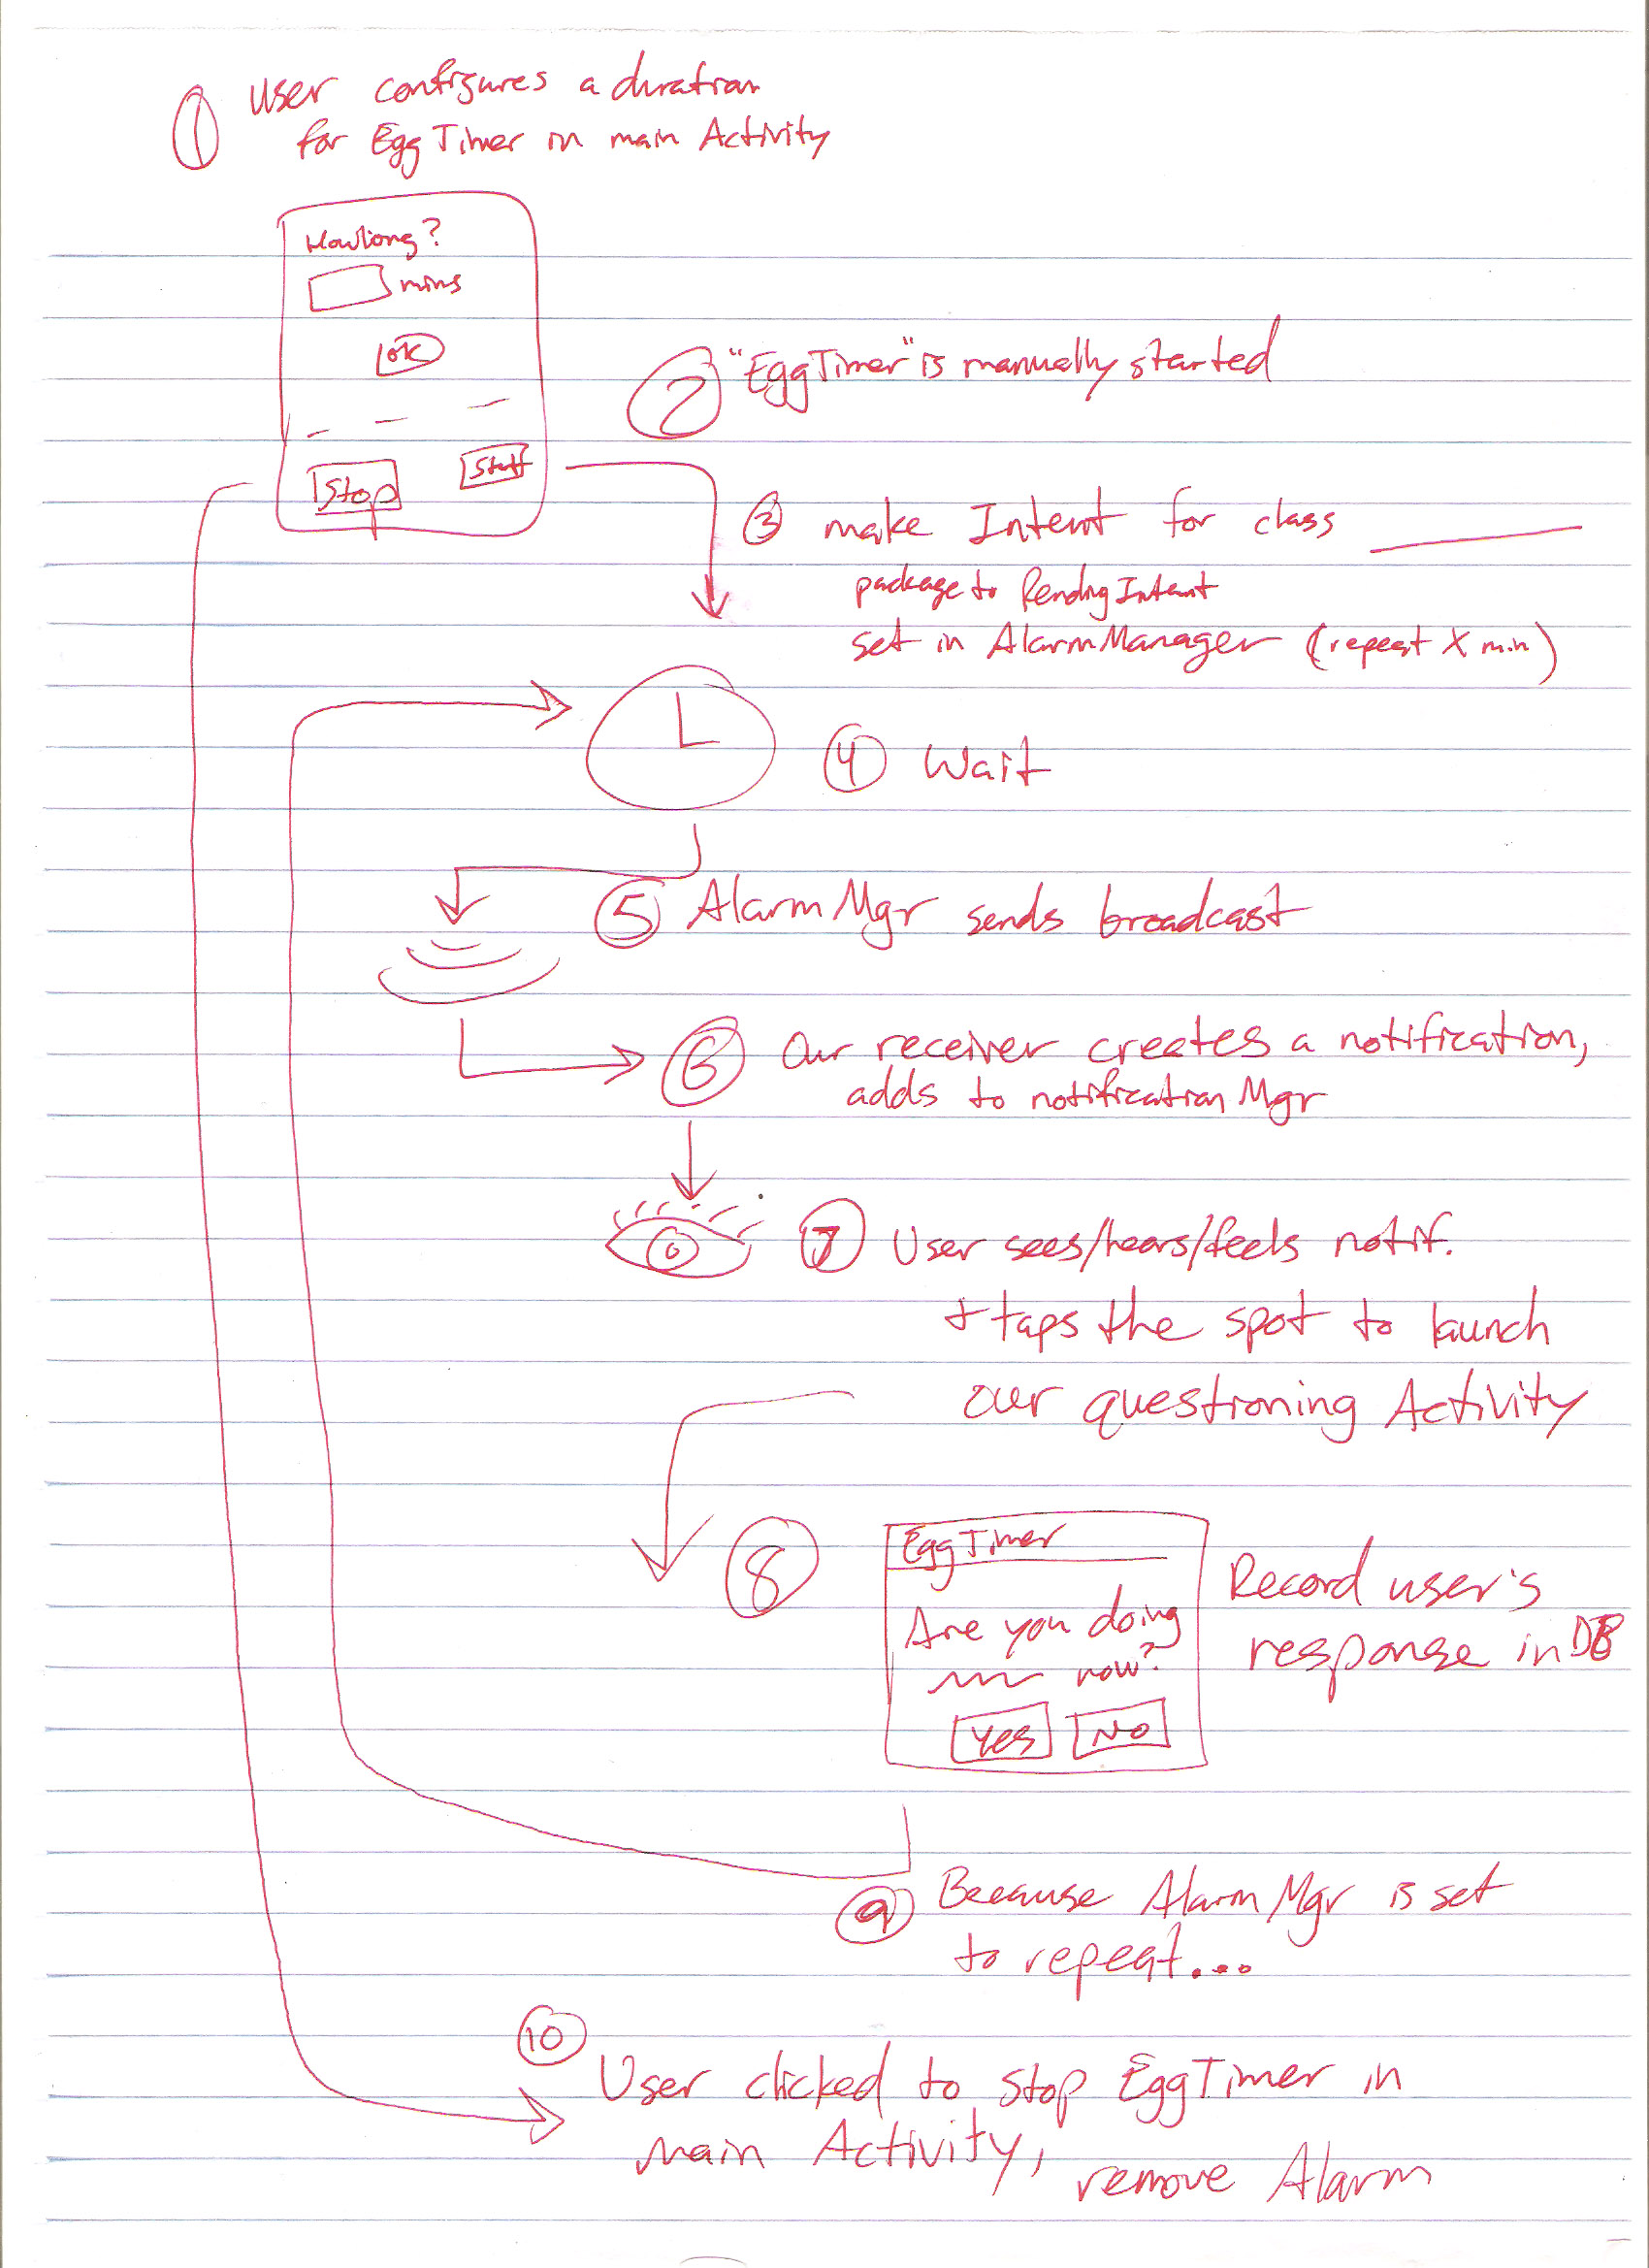 ① User configures a duration
for EggTimer in main Activity
How long?
mins
OK
Stop
Start
② "EggTimer" is manually started
③ make Intent for class ______
package to PendingIntent
set in AlarmManager (repeat X min)
④ Wait
⑤ AlarmMgr sends broadcast
⑥ Our receiver creates a notification,
adds to notificationMgr
⑦ User sees/hears/feels notif.
+ taps the spot to launch
our questioning Activity
⑧
EggTimer
Are you doing
now?
Yes
No
Record user's
response in DB
⑨ Because AlarmMgr is set
to repeat...
⑩
User clicked to stop EggTimer in
main Activity,
remove Alarm